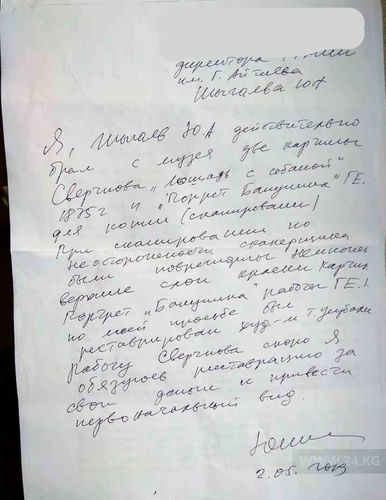 директора
им. Г. Айтиева
Шыгаева ЮА
Я, Шыгаев Ю.А действительно
брал с музея две картины
Сверчкова „Лошадь с собакой"
1875г и "Портрет Бакунина" ГЕ.
для копии (сканировании)
При сканировании по
неосторожности сканерщика
были повреждены немного
верхние слои краски картин
Портрет „Бакунина" работы ГЕ.
по моей просьбе был
реставрирован худ-м т.
Работу Сверчкова скоро Я
обязуюсь реставрацию за
свои деньги и привести
первоначальный вид.
2.05. 2019
WWW.24.KG